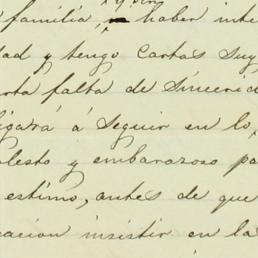 familia, haber inte
dad y tengo cartas suy
rta falta de sincerid
ligará á seguir en lo,
olesto y embarazoso pa
estimo, antes de que
cacion insistir en la